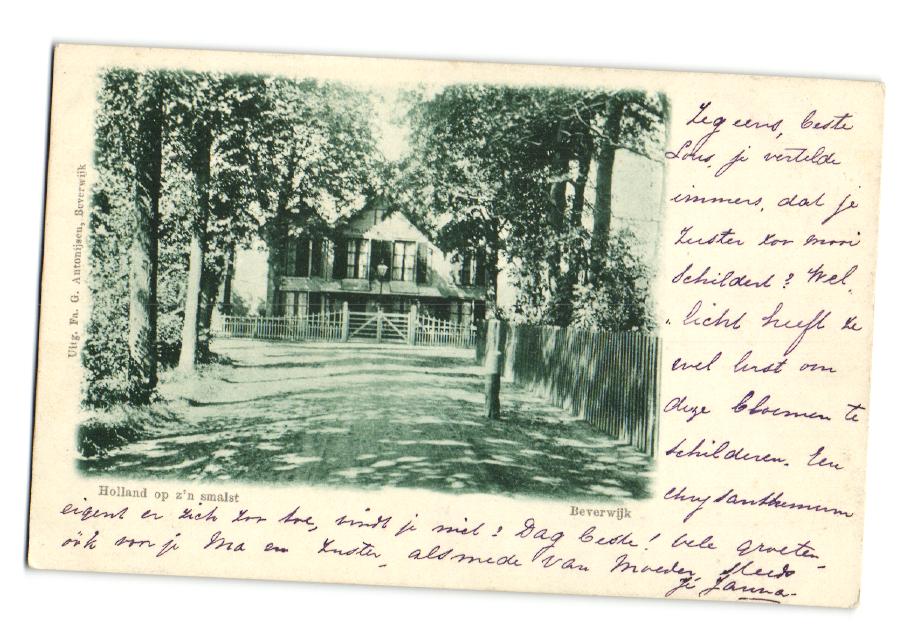 Uitg. Fa. G. Antonijsen, Beverwijk
Holland op z'n smalst
Beverwijk
Zeg eens, beste
Lous, je vertelde
immers, dat je
Zuster zoo mooi
schildert? Wel-
licht heeft ze
wel lust om
deze bloemen te
schilderen. Een
chrysanthemum
eigent er zich zoo toe, vindt je niet? Dag beste! vele groeten
ook voor je Ma en Zuster, alsmede van Moeder steeds
je Janna.